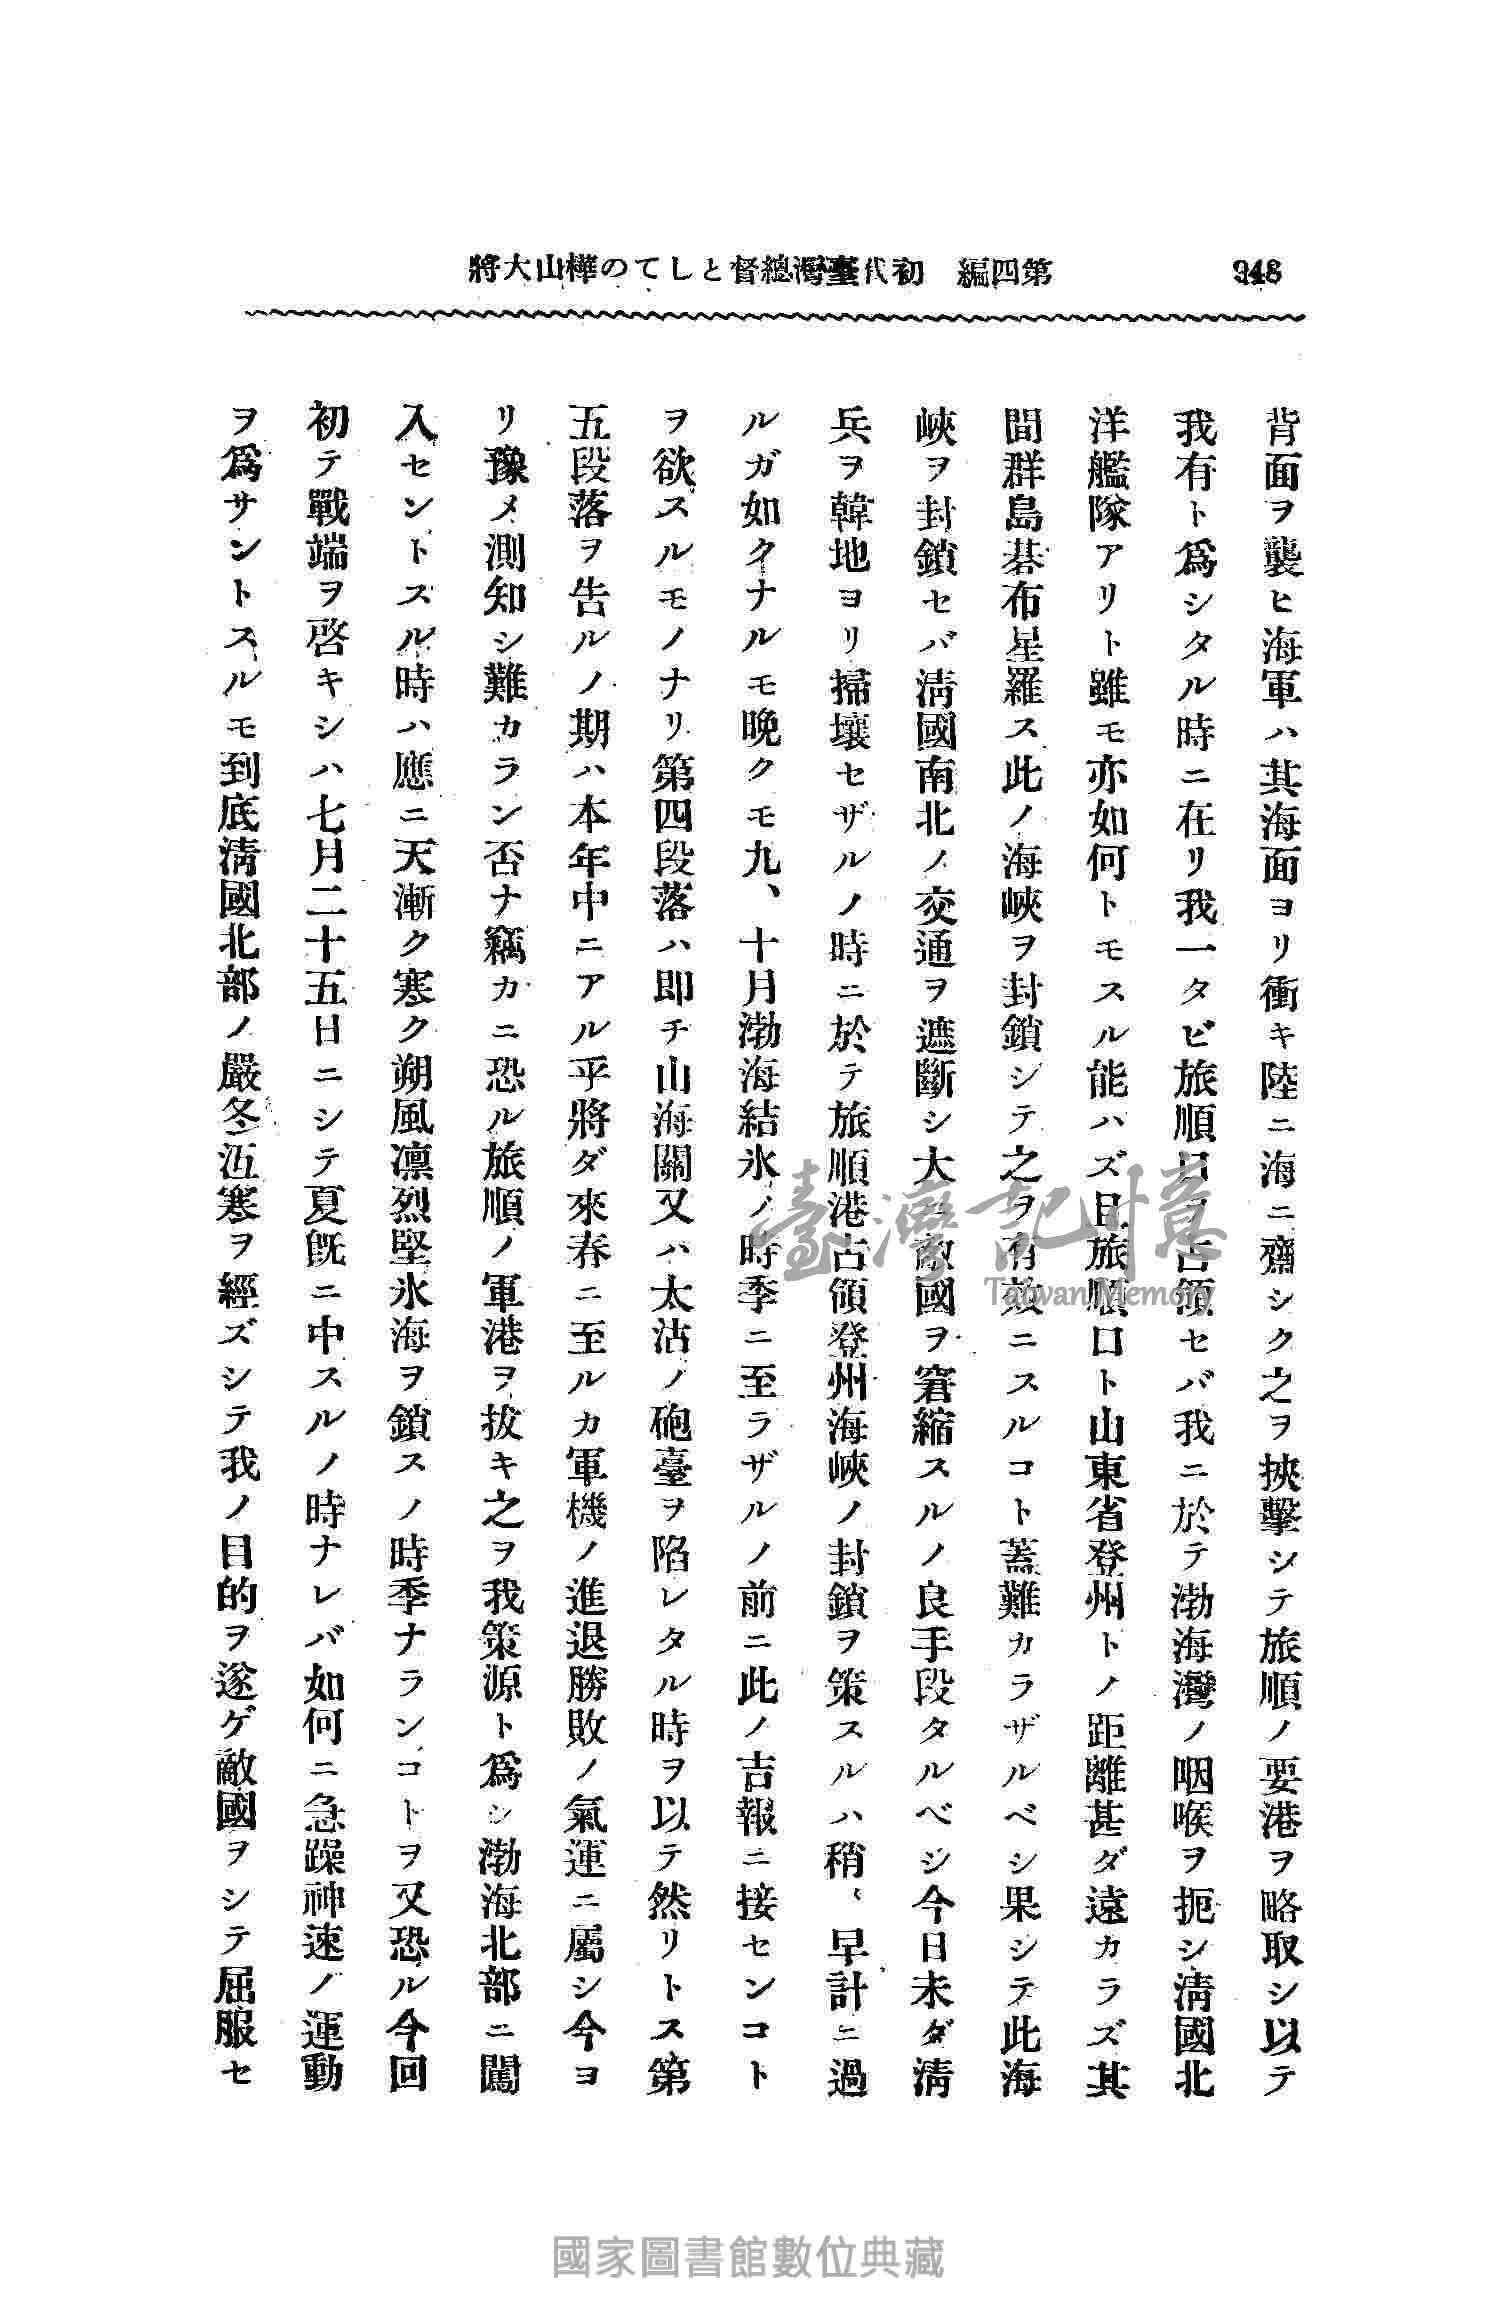 948
第四編　初代臺灣總督としての樺山大將
背面ヲ襲ヒ海軍ハ其海面ヨリ衝キ陸ニ海ニ齋シク之ヲ挾擊シテ旅順ノ要港ヲ略取シ以テ
我有ト爲シタル時ニ在リ我一タビ旅順口ヲ占領セバ我ニ於テ渤海灣ノ咽喉ヲ扼シ淸國北
洋艦隊アリト雖モ亦如何トモスル能ハズ且旅順口ト山東省登州トノ距離甚ダ遠カラズ其
間群島碁布星羅ス此ノ海峽ヲ封鎖シテ之ヲ有效ニスルコト蓋難カラザルベシ果シテ此海
峽ヲ封鎖セバ淸國南北ノ交通ヲ遮斷シ大ニ敵國ヲ窘縮スルノ良手段タルベシ今日未ダ淸
兵ヲ韓地ヨリ掃壤セザルノ時ニ於テ旅順港占領登州海峽ノ封鎖ヲ策スルハ稍〻早計ニ過
ルガ如クナルモ晩クモ九、十月渤海結氷ノ時季ニ至ラザルノ前ニ此ノ吉報ニ接センコト
ヲ欲スルモノナリ第四段落ハ卽チ山海關又ハ太沽ノ砲臺ヲ陷レタル時ヲ以テ然リトス第
五段落ヲ告ルノ期ハ本年中ニアル乎將ダ來春ニ至ルカ軍機ノ進退勝敗ノ氣運ニ屬シ今ヨ
リ豫メ測知シ難カラン否ナ竊カニ恐ル旅順ノ軍港ヲ拔キ之ヲ我策源ト爲シ渤海北部ニ闖
入セントスル時ハ應ニ天漸ク寒ク朔風凛烈堅氷海ヲ鎖スノ時季ナランコトヲ又恐ル今回
初テ戰端ヲ啓キシハ七月二十五日ニシテ夏旣ニ中スルノ時ナレバ如何ニ急躁神速ノ運動
ヲ爲サントスルモ到底淸國北部ノ嚴冬沍寒ヲ經ズシテ我ノ目的ヲ遂ゲ敵國ヲシテ屈服セ
臺灣記憶
Taiwan Memory
國家圖書館數位典藏